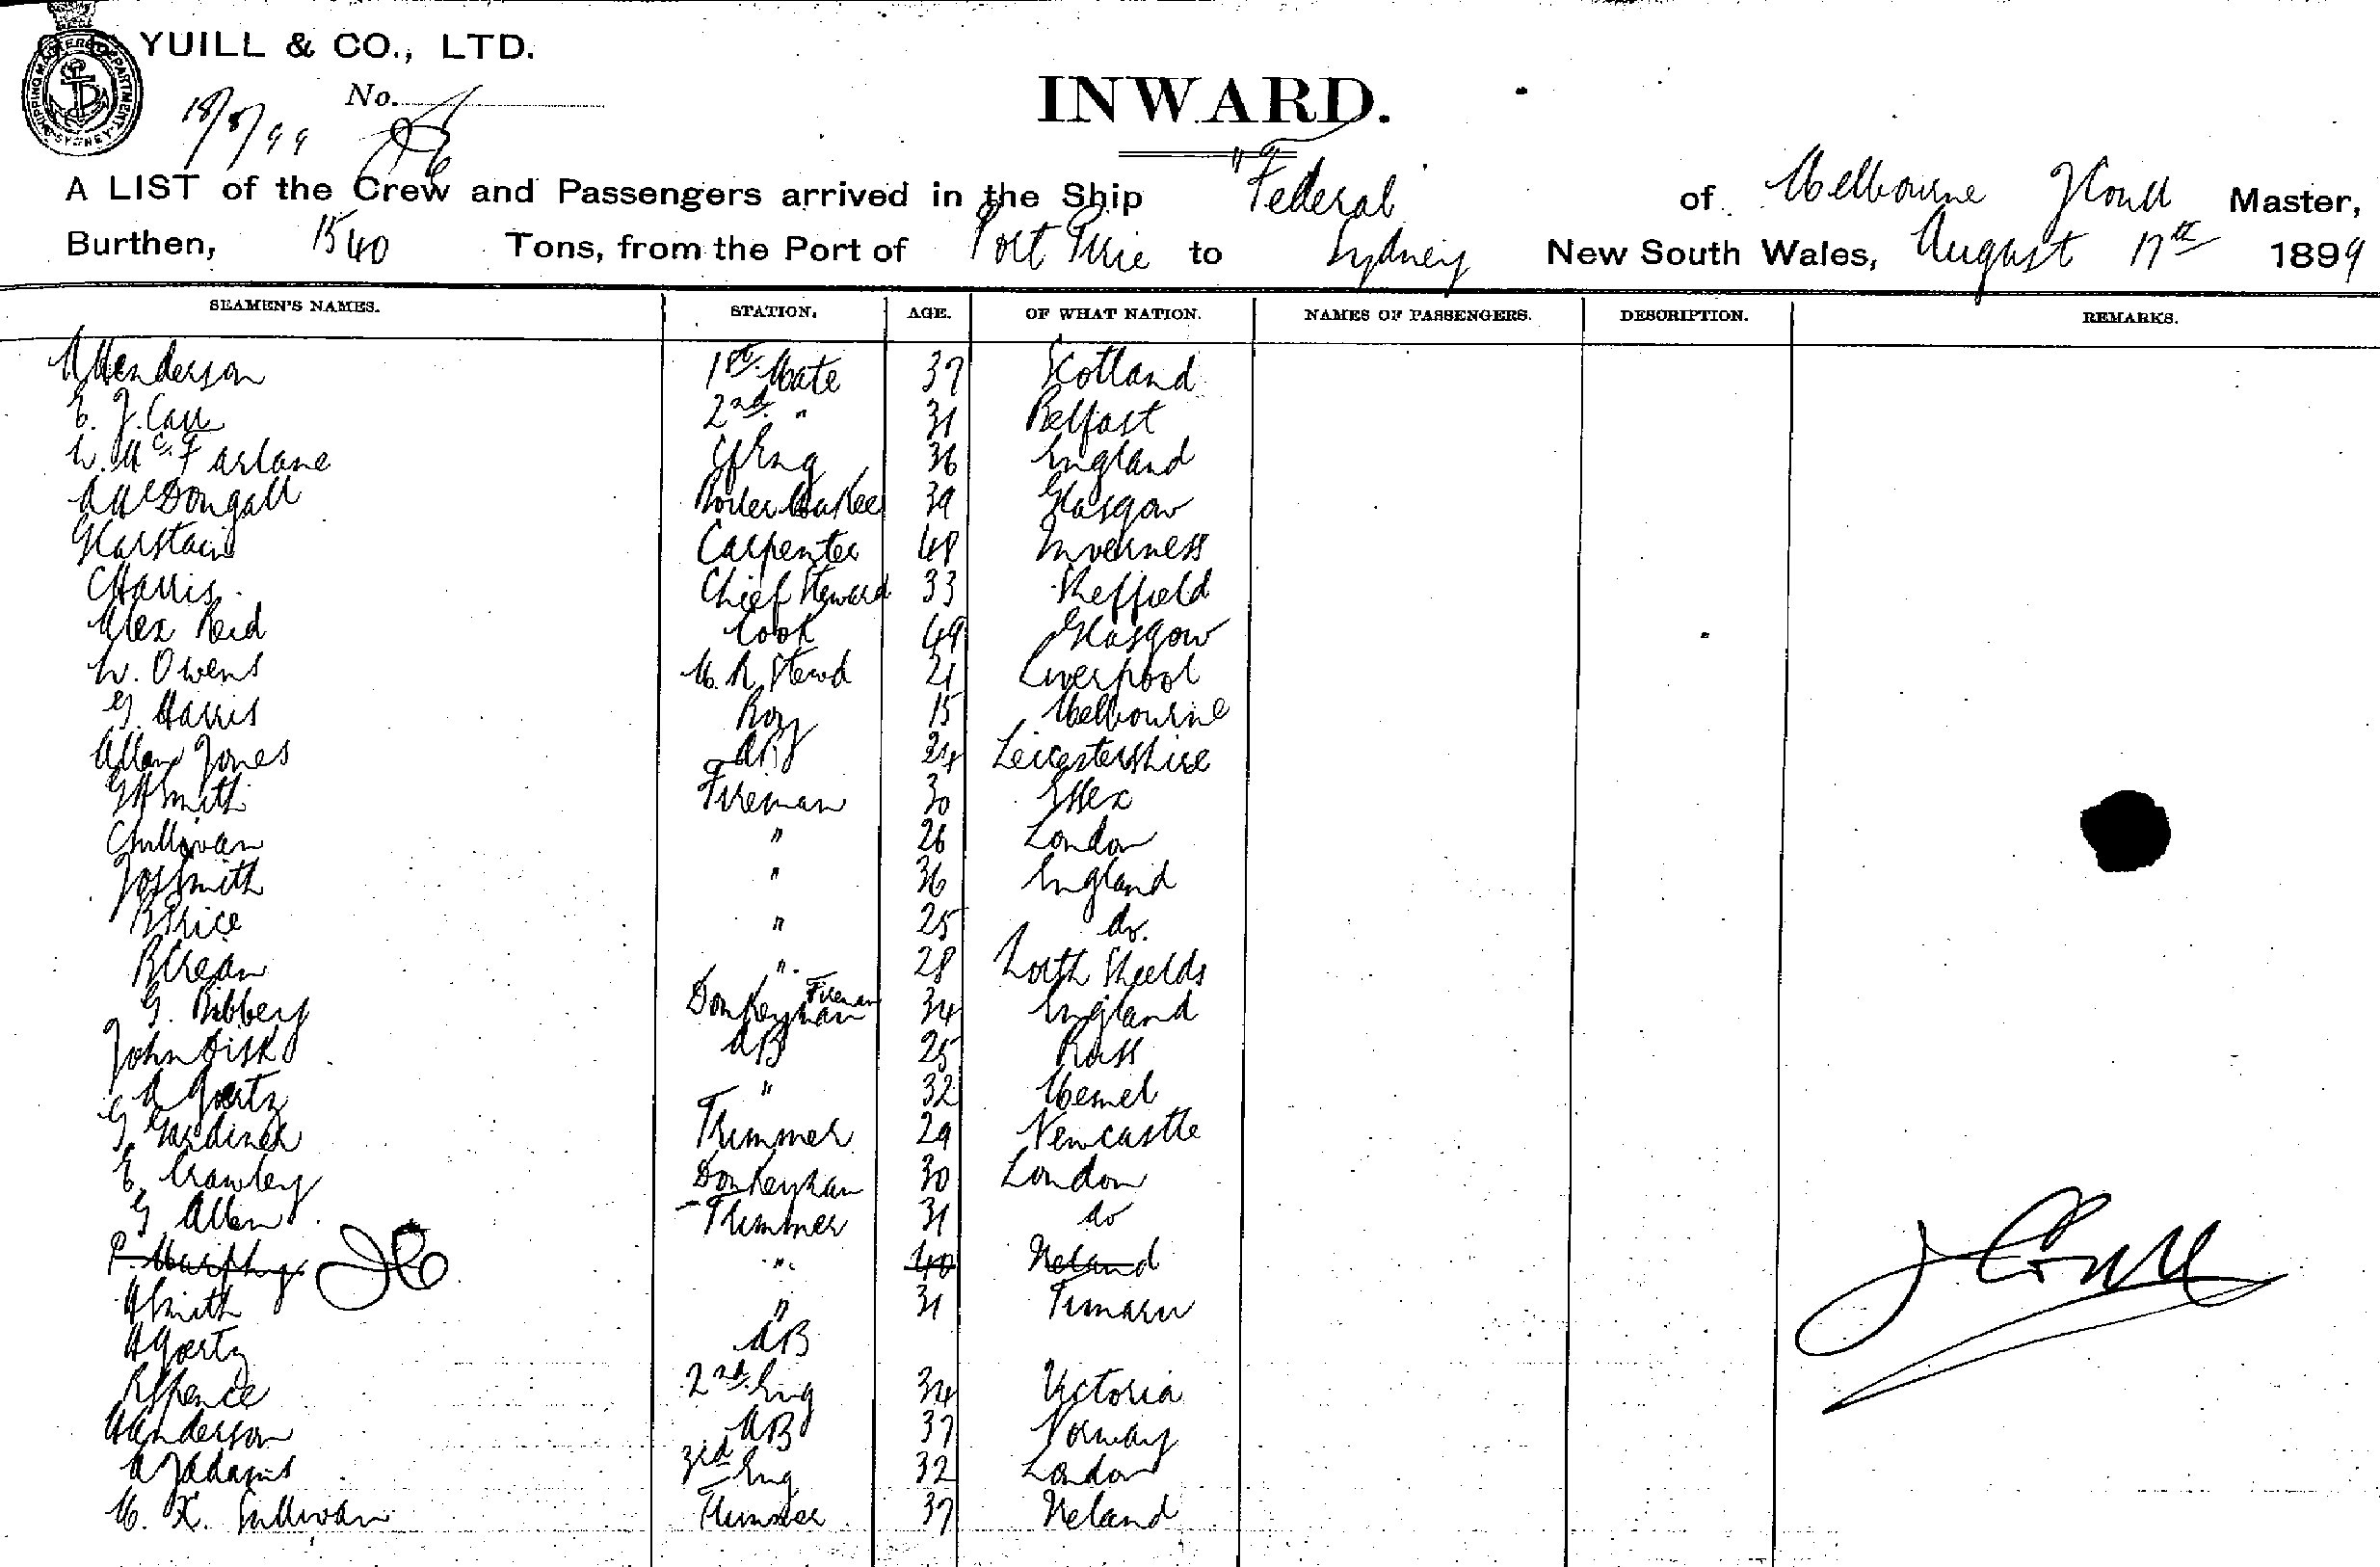 YUILL & CO., LTD.
SHIPPING MASTER'S DEPARTMENT SYDNEY
No.
18/8/99
INWARD.
A LIST of the Crew and Passengers arrived in the Ship "Federal of Melbourne Master,
Burthen, 1540 Tons, from the Port of Port Pirie to Sydney New South Wales, August 17th 1899
SEAMEN'S NAMES. STATION. AGE. OF WHAT NATION. NAMES OF PASSENGERS. DESCRIPTION. REMARKS.
Henderson 1st Mate 37 Scotland
E. J. Carr 2nd " 31 Belfast
W. McFarlane Cf Eng 36 England
A McDongall Boiler Maker 39 Glasgow
Karstain Carpenter 48 Inverness
C Harris Chief Steward 33 Sheffield
Alex Reid Cook 49 Glasgow
W. Owens M. R. Stewd 21 Liverpool
G. Harris Boy 15 Melbourne
Allan Jones AB 24 Leicestershire
G A Smith Fireman 30 Essex
C Sullivan " 26 London
Jos Smith " 36 England
B Price " 25 do.
R Crean " 28 North Shields
G. Bibbey Donkeyman Fireman 34 England
John Fisk AB 25 Ross
A Goertz " 32 Memel
G. Gardiner Trimmer 29 Newcastle
E. Crawley Donkeyman 30 London
G Allen Trimmer 31 do
P. Murphy " 40 Ireland
A Smith " 31 Timaru
A Goertz AB
R Spence 2nd Eng 34 Victoria
H Anderson AB 37 Norway
A J Adams 3rd Eng 32 London
M. X. Sullivan Trimmer 37 Ireland